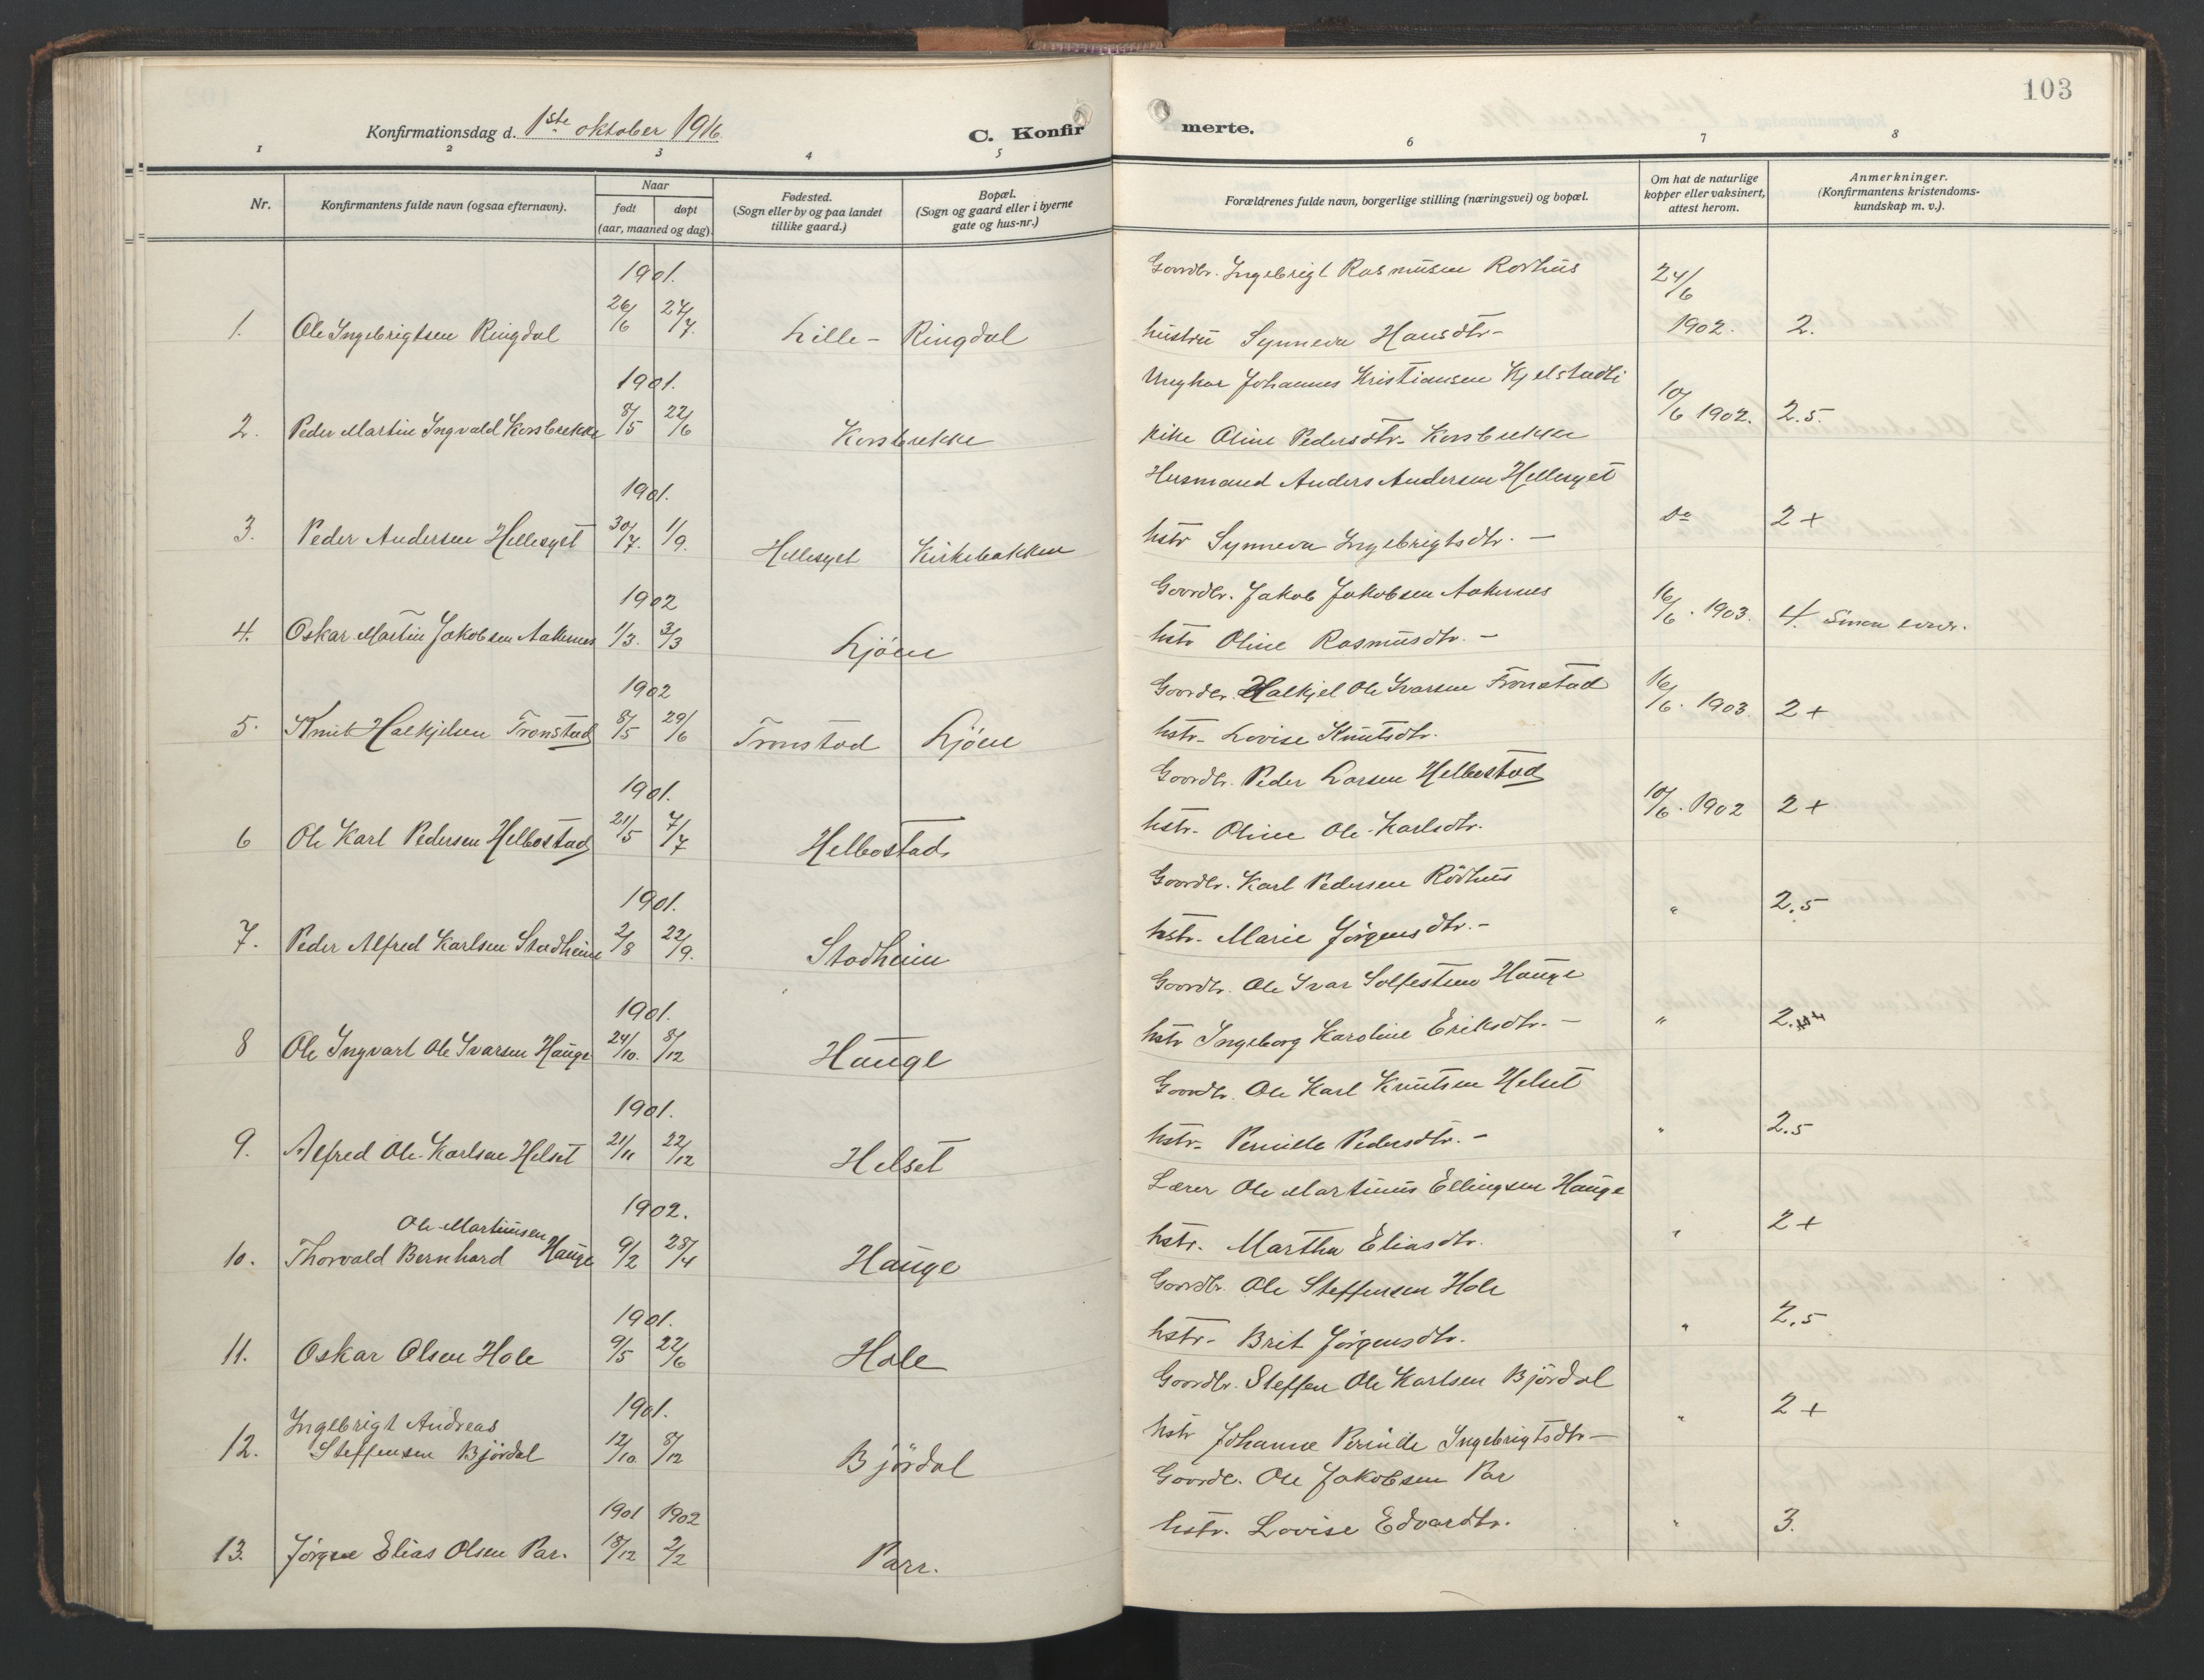 103
Konfirmationsdag d. 1ste oktober 1916.
C. Konfirmerte.
1 2 3 4 5 6 7 8
Nr.
Konfirmantens fulde navn (ogsaa efternavn).
Naar
født døpt
(aar, maaned og dag).
Fødested.
(Sogn eller by og paa landet
tillike gaard.)
Bopæl.
(Sogn og gaard eller i byerne
gate og hus-nr.)
Forældrenes fulde navn, borgerlige stilling (næringsvei) og bopæl.
Om hat de naturlige
kopper eller vaksinert,
attest herom.
Anmerkninger.
(Konfirmantens kristendoms-
kundskap m. v.).
1901. Goordbr. Ingebrigt Rasmusen Rødhus 24/6
1. Ole Ingebrigtsen Ringdal 26/6 24/7. Lille- Ringdal hustru Synneva Hansdtr- 1902. 2.
1901. Ungkar Johannes Kristiansen Kjelstadli
2. Peder Martin Ingvald Korsbrekke 8/5 22/6 Korsbrekke pike Oline Pedersdtr- Korsbrekke 10/6 1902. 2.5.
1901. Husmand Anders Andersen Hellesyet
3. Peder Andersen Hellesyet 30/7. 1/9. Hellesyet Kirkebakken hstr Synneva Ingebrigtsdtr. - do 2+
1902 Goordbr. Jakob Jakobsen Aakernes
4. Oskar Martin Jakobsen Aakernes 1/3. 3/3 Ljøen hstr Oline Rasmusdtr. - 16/6. 1903. 4.
1902 Goordbr. Halkjel Ole Ivarsen Tronstad
5. Knut Halkjelsen Tronstad 8/5 29/6 Tronstad Ljøen hstr- Lovise Knutsdtr. 16/6. 1903. 2+
1901. Goordbr. Peder Larsen Hellbostad
6 Ole Karl Pedersen Hellbostad 21/5 7/7 Hellbostad. hstr- Oline Ole-Karlsdtr. 10/6. 1902 2+
1901. Goordbr. Karl Pedersen Rødhus
7. Peder Alfred Karlsen Stadheim 2/8 22/9. Stadheim hstr- Marie Jørgensdtr. - " 2.5
1901. Goordbr. Ole Ivar Solfestsen Hauge
8 Ole Ingvart Ole Ivarsen Hauge 24/10. 8/12 Hauge hstr Ingeborg Karoline Eriksdtr. - " 2.
1901. Goordbr. Ole Karl Knutsen Helset
9. Alfred Ole-Karlsen Helset 21/11 22/12 Helset hstr- Pernille Pedersdtr. - " 2.5
1902. Lærer Ole Martinus Ellingsen Hauge
Ole-Martinusen
10. Thorvald Bernhard Hauge 9/2 28/4 Hauge hstr. Martha Eliasdtr. " 2+
1901. Goordbr. Ole Steffensen Hole
11. Oskar Olsen Hole 9/5 22/6 Hole hstr- Brit Jørgensdtr. " 2.5
1901. Goordbr. Steffen Ole Karlsen Bjørdal
12. Ingebrigt Andreas
Steffensen Bjørdal 12/10 8/12 Bjørdal hstr Johanne Pernille Ingebrigtsdtr- " 2+
1901 1902 Goordbr. Ole Jakobsen Par
13. Jørgen Elias Olsen Par. 18/12 2/2 Parr. hstr. Lovise Edvardtr. " 3.